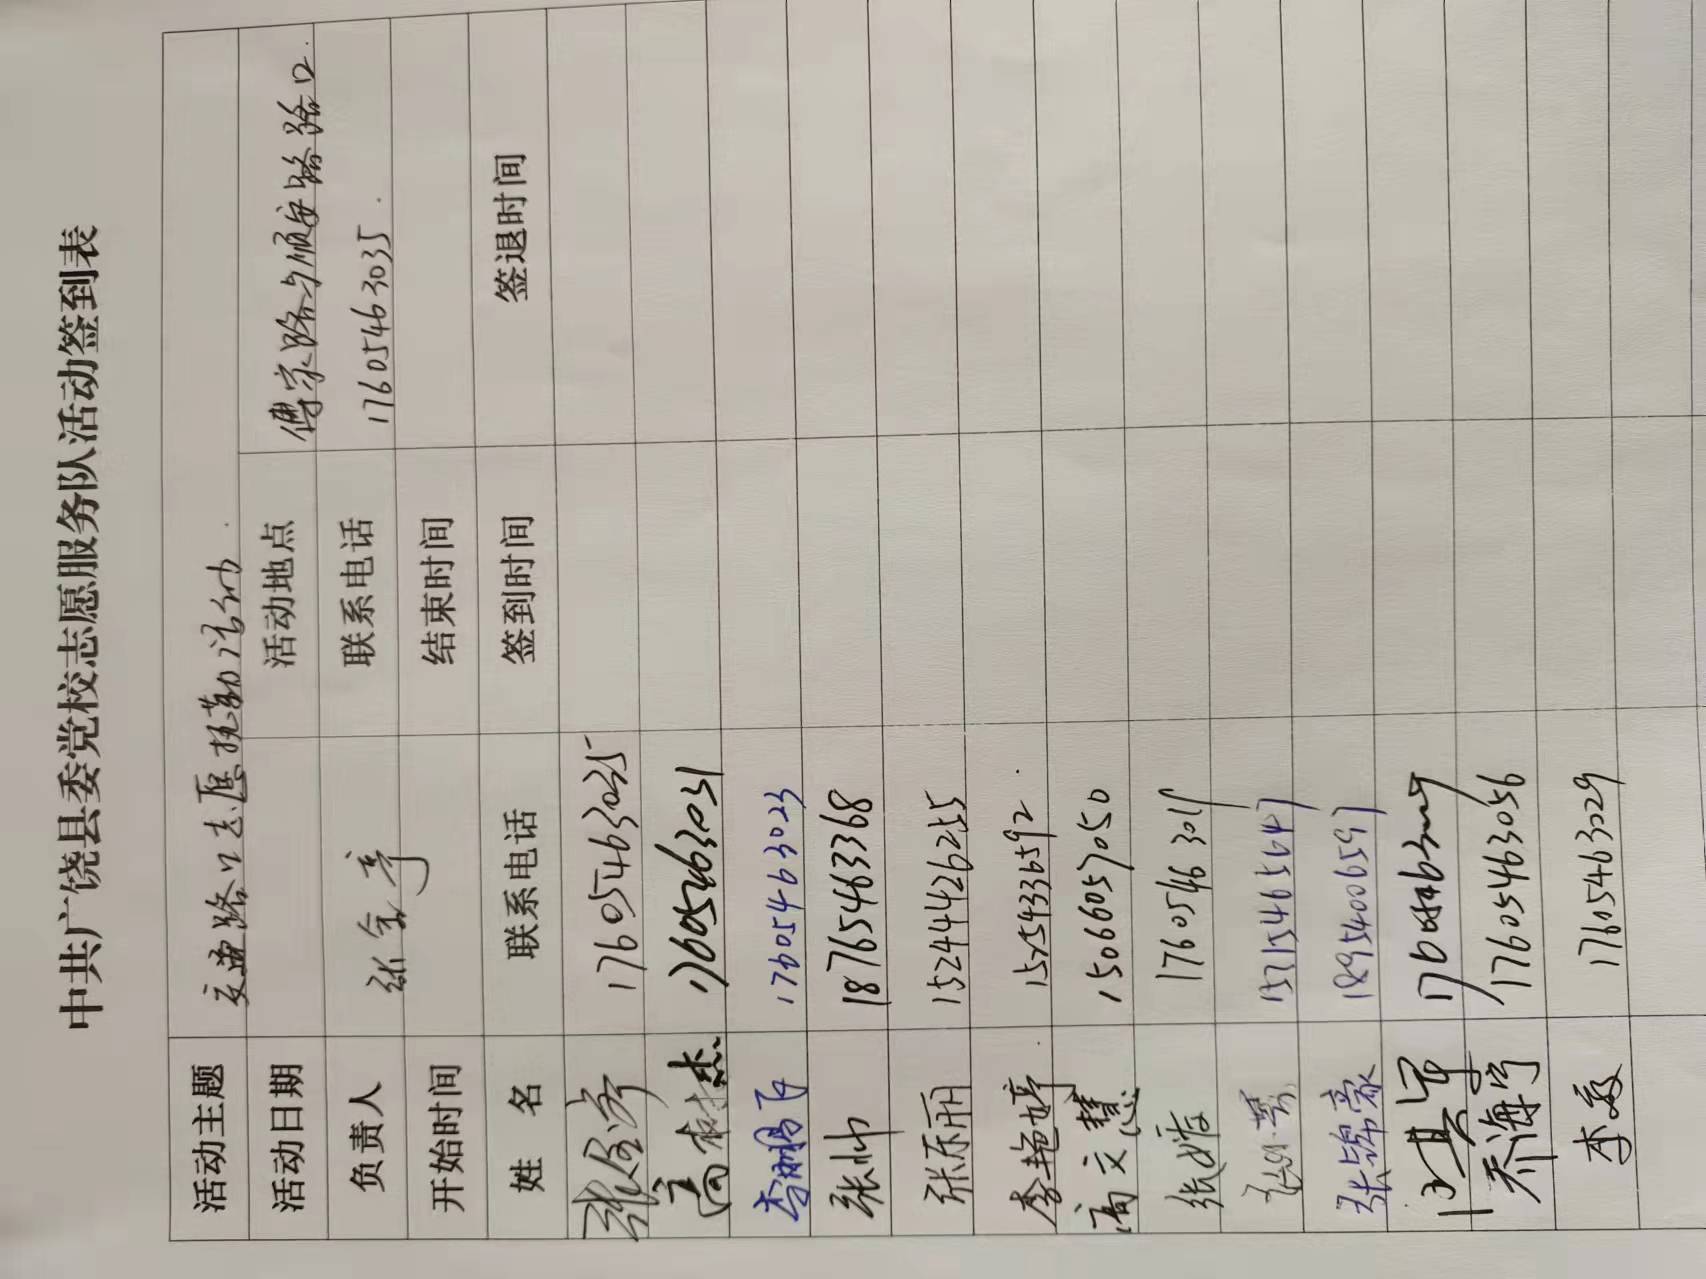 中共广饶县委党校志愿服务队活动签到表
活动主题 交通路口志愿执勤活动
活动日期 活动地点 傅家路与顺安路路口
负责人 张金亭 联系电话 17605463035
开始时间 结束时间
姓 名 联系电话 签到时间 签退时间
17605463035
高树杰 17605463031
李鹏飞 17605463023
张帅 18765463368
张东丽 15244426255
李艳婷 15254336592
高文慧 15066057050
张婷
张锦豪 18954006597
乔海宁 17605463056
李敏 17605463029